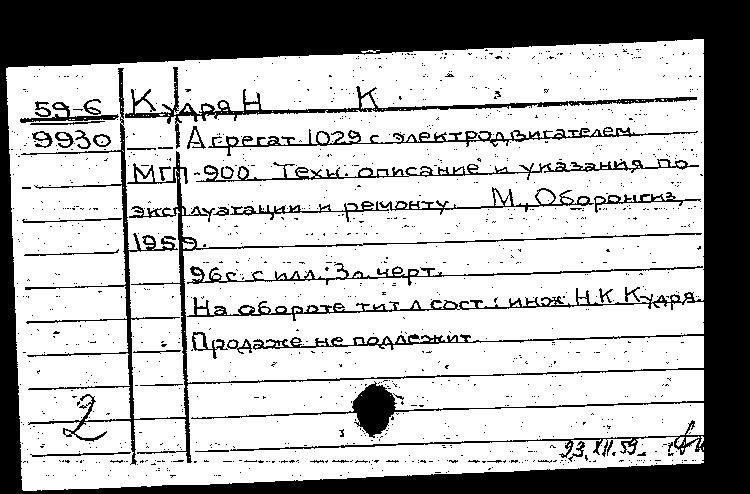 59-6 Кудря, Н К.
9930 Агрегат 1029 с электродвигателем
МГП-900. Техн. описание и указания по
эксплуатации и ремонту. М., Оборонгиз,
1959.
96с. с илл.; 3л. черт.
На обороте тит. л сост.: инж. Н.К. Кудря.
Продаже не подлежит.
2
23.XII.59.